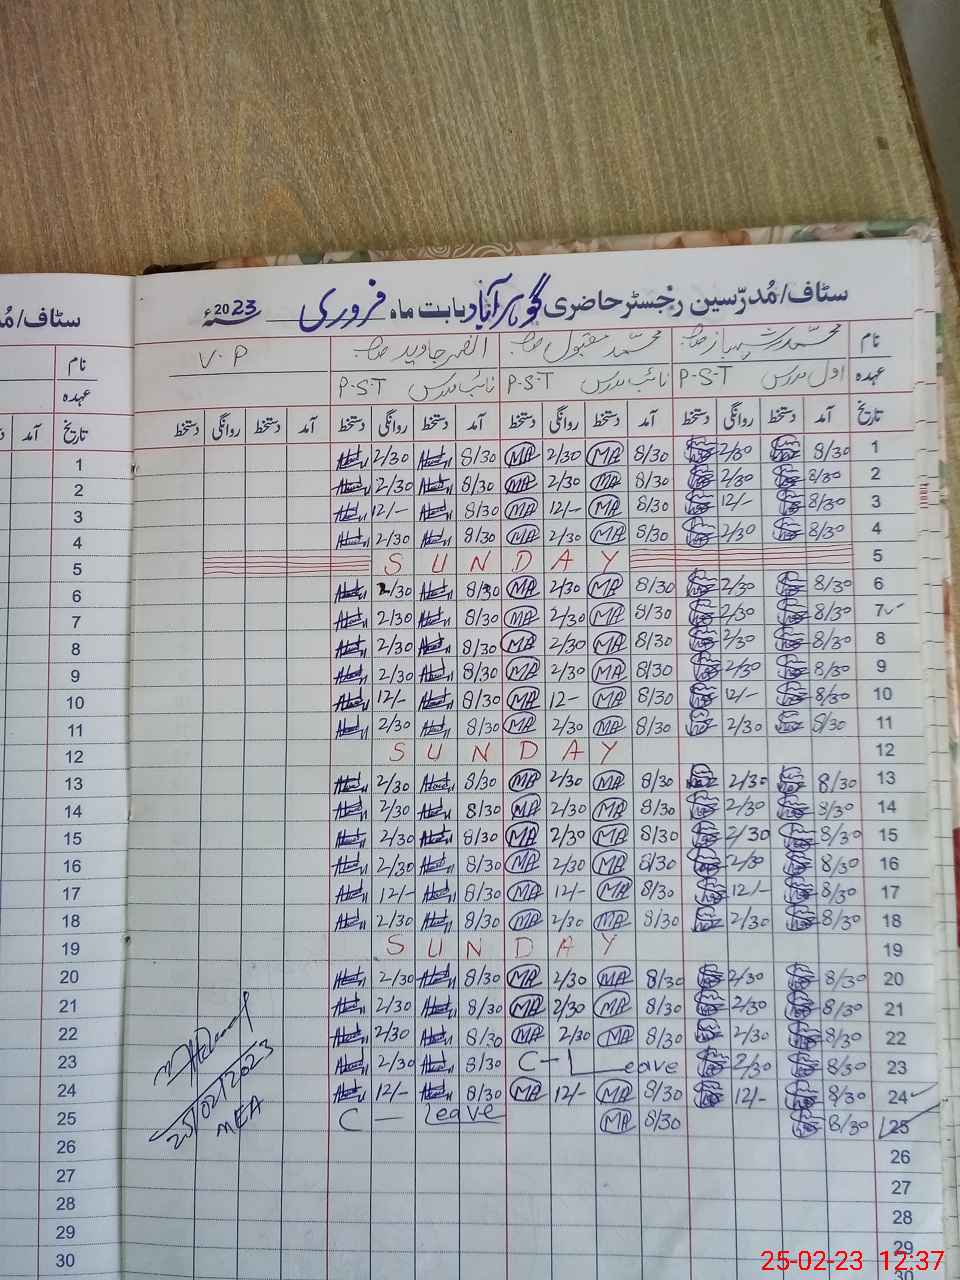 سٹاف/مُدرّسین رجسٹر حاضری گوہر آباد بابت ماہ فروری 2023ء
سٹاف/مُ
نام محمد شہباز محمد مقبول V.P
نام
عہدہ اول مدرس P-S-T نائب مدرس P-S-T نائب مدرس P-S-T
عہدہ
تاریخ آمد دستخط روانگی دستخط آمد دستخط روانگی دستخط آمد دستخط روانگی دستخط آمد دستخط روانگی دستخط
تاریخ آمد
1 8/30 2/30 8/30 MA 2/30 MA 8/30 2/30 1
2 8/30 2/30 8/30 MA 2/30 MA 8/30 2/30 2
3 8/30 12/- 8/30 MA 12/- MA 8/30 12/- 3
4 8/30 2/30 8/30 MA 2/30 MA 8/30 2/30 4
5 SUNDAY 5
6 8/30 2/30 8/30 MA 2/30 MA 8/30 2/30 6
7 8/30 2/30 8/30 MA 2/30 MA 8/30 2/30 7
8 8/30 2/30 8/30 MA 2/30 MA 8/30 2/30 8
9 8/30 2/30 8/30 MA 2/30 MA 8/30 2/30 9
10 8/30 12/- 8/30 MA 12- MA 8/30 12/- 10
11 8/30 2/30 8/30 MA 2/30 MA 8/30 2/30 11
12 SUNDAY 12
13 8/30 2/30 8/30 MA 2/30 MA 8/30 2/30 13
14 8/30 2/30 8/30 MA 2/30 MA 8/30 2/30 14
15 8/30 2/30 8/30 MA 2/30 MA 8/30 2/30 15
16 8/30 2/30 8/30 MA 2/30 MA 8/30 2/30 16
17 8/30 12/- 8/30 MA 12/- MA 8/30 12/- 17
18 8/30 2/30 8/30 MA 2/30 MA 8/30 2/30 18
19 SUNDAY 19
20 8/30 2/30 8/30 MA 2/30 MA 8/30 2/30 20
21 8/30 2/30 8/30 MA 2/30 MA 8/30 2/30 21
22 8/30 2/30 8/30 MA 2/30 MA 8/30 2/30 22
23 8/30 2/30 C-Leave 8/30 2/30 23
24 8/30 12/- 8/30 MA 12/- MA 8/30 12/- 24
25 8/30 8/30 MA C - Leave 25
25/02/2023
MEA
26 26
27 27
28 28
29 29
30 30
25-02-23 12:37